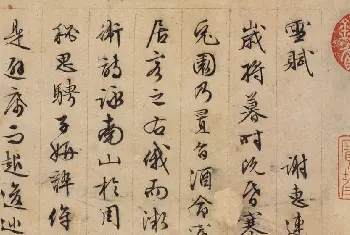 雪賦 謝惠連
歲將暮時既昏寒
兔園乃置旨酒命賓
居客之右俄而微
衛詩詠南山於周
秘思騁子妍辭侔
是避席而起逡巡